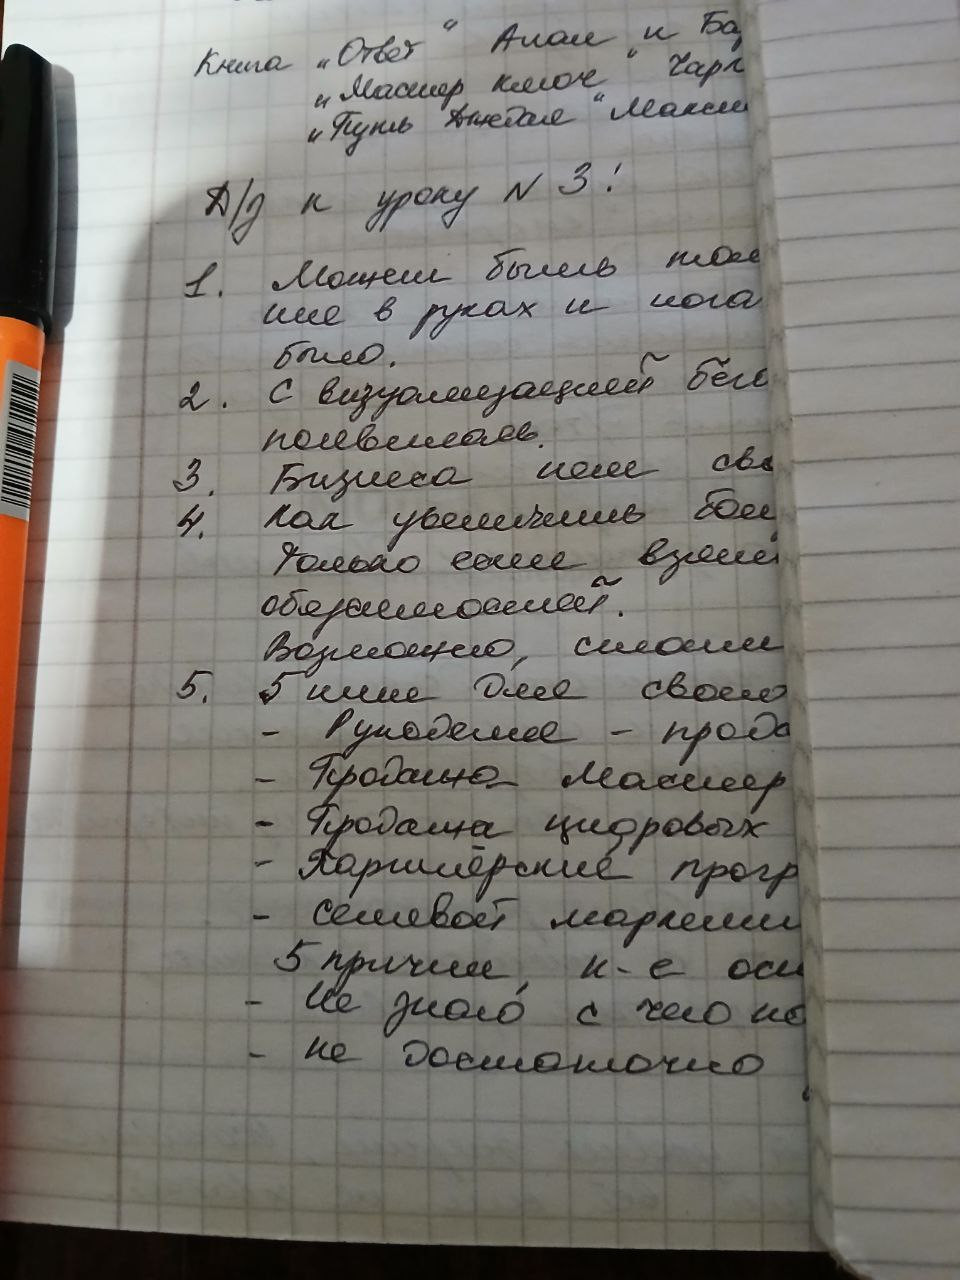 Книга "Ответ" Алан и Ба
"Мастер ключ" Чарл
"Путь Джедая" Макси
Д/з к уроку N 3!
1. Может быть
в руках и нога
было.
2. С визуализацией
появилась.
3. Бизнеса нет сво
4. Как увеличить
только если взят
обязанностей.
Возможно, стоит
5. 5 ниш для своего
- Рукоделие - прода
- Продажа Мастер
- Продажа цифровых
- Партнёрские прогр
- сетевой маркетин
5 причин, к-е ост
- Не знаю с чего на
- не достаточно